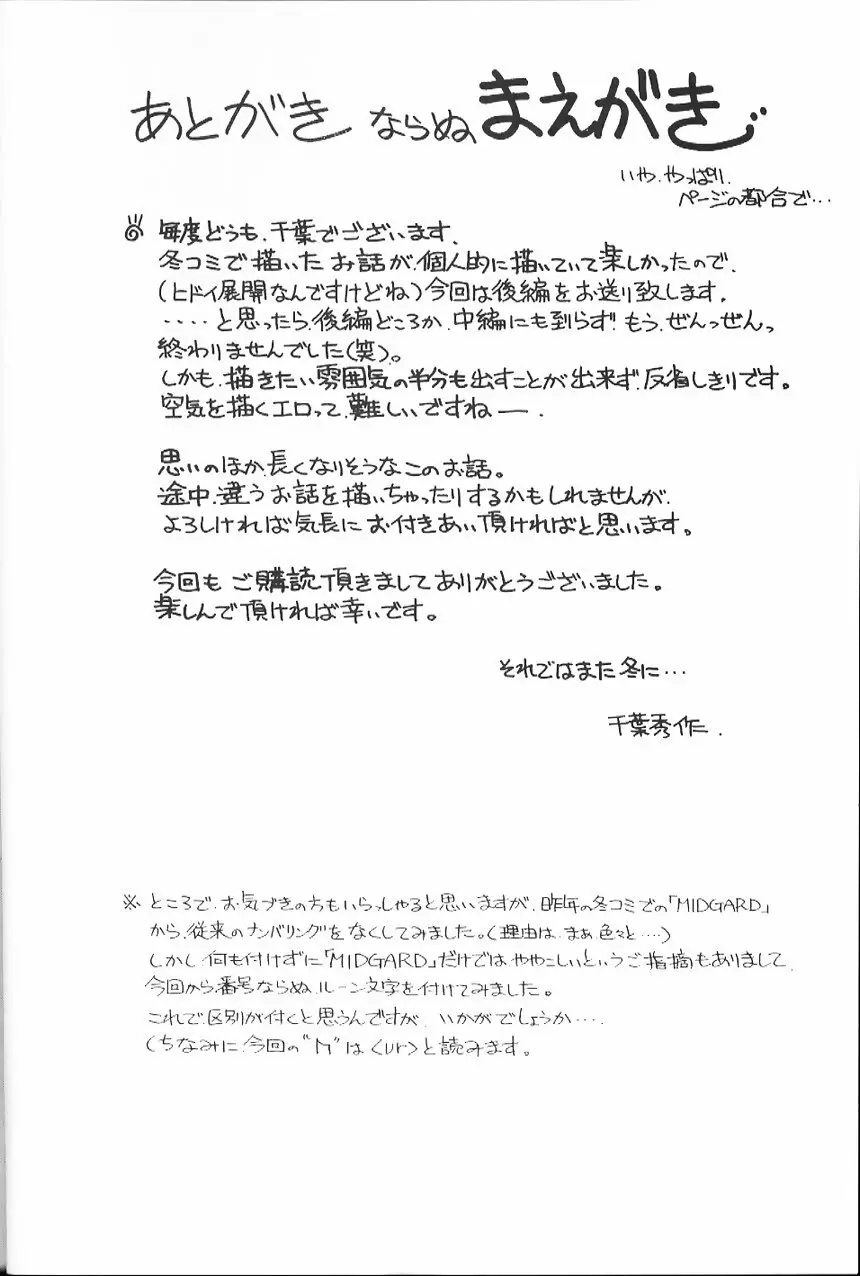 あとがき ならぬ まえがき
いや、やっぱり、
ページの都合で…
毎度どうも、千葉でございます、
冬コミで描いたお話が、個人的に描いていて楽しかったので、
(ヒドイ展開なんですけどね)今回は後編をお送り致します。
‥‥と思ったら、後編どころか、中編にも到らず!もう、ぜんっぜんっ
終わりませんでした(笑)。
しかも、描きたい雰囲気の半分も出すことが出来ず、反省しきりです。
空気を描くエロって、難しいですねー、
思いのほか、長くなりそうなこのお話。
途中、違うお話を描いちゃったりするかもしれませんが、
よろしければ気長にお付きあい頂ければと思います。
今回もご購読頂きましてありがとうございました。
楽しんで頂ければ幸いです。
それではまた冬に…
千葉秀作、
※ところで、お気づきの方もいらっしゃると思いますが、昨年の冬コミでの「MIDGARD」
から、従来のナンバリングをなくしてみました。(理由は、まぁ、色々と‥‥)
しかし、何も付けずに「MIDGARD」だけでは、ややこしいというご指摘もありまして、
今回から番号ならぬ、ルーン文字を付けてみました。
これで区別が付くと思うんですが、いかがでしょうか‥‥
(ちなみに、今回の"ᚢ"は<ur>と読みます。